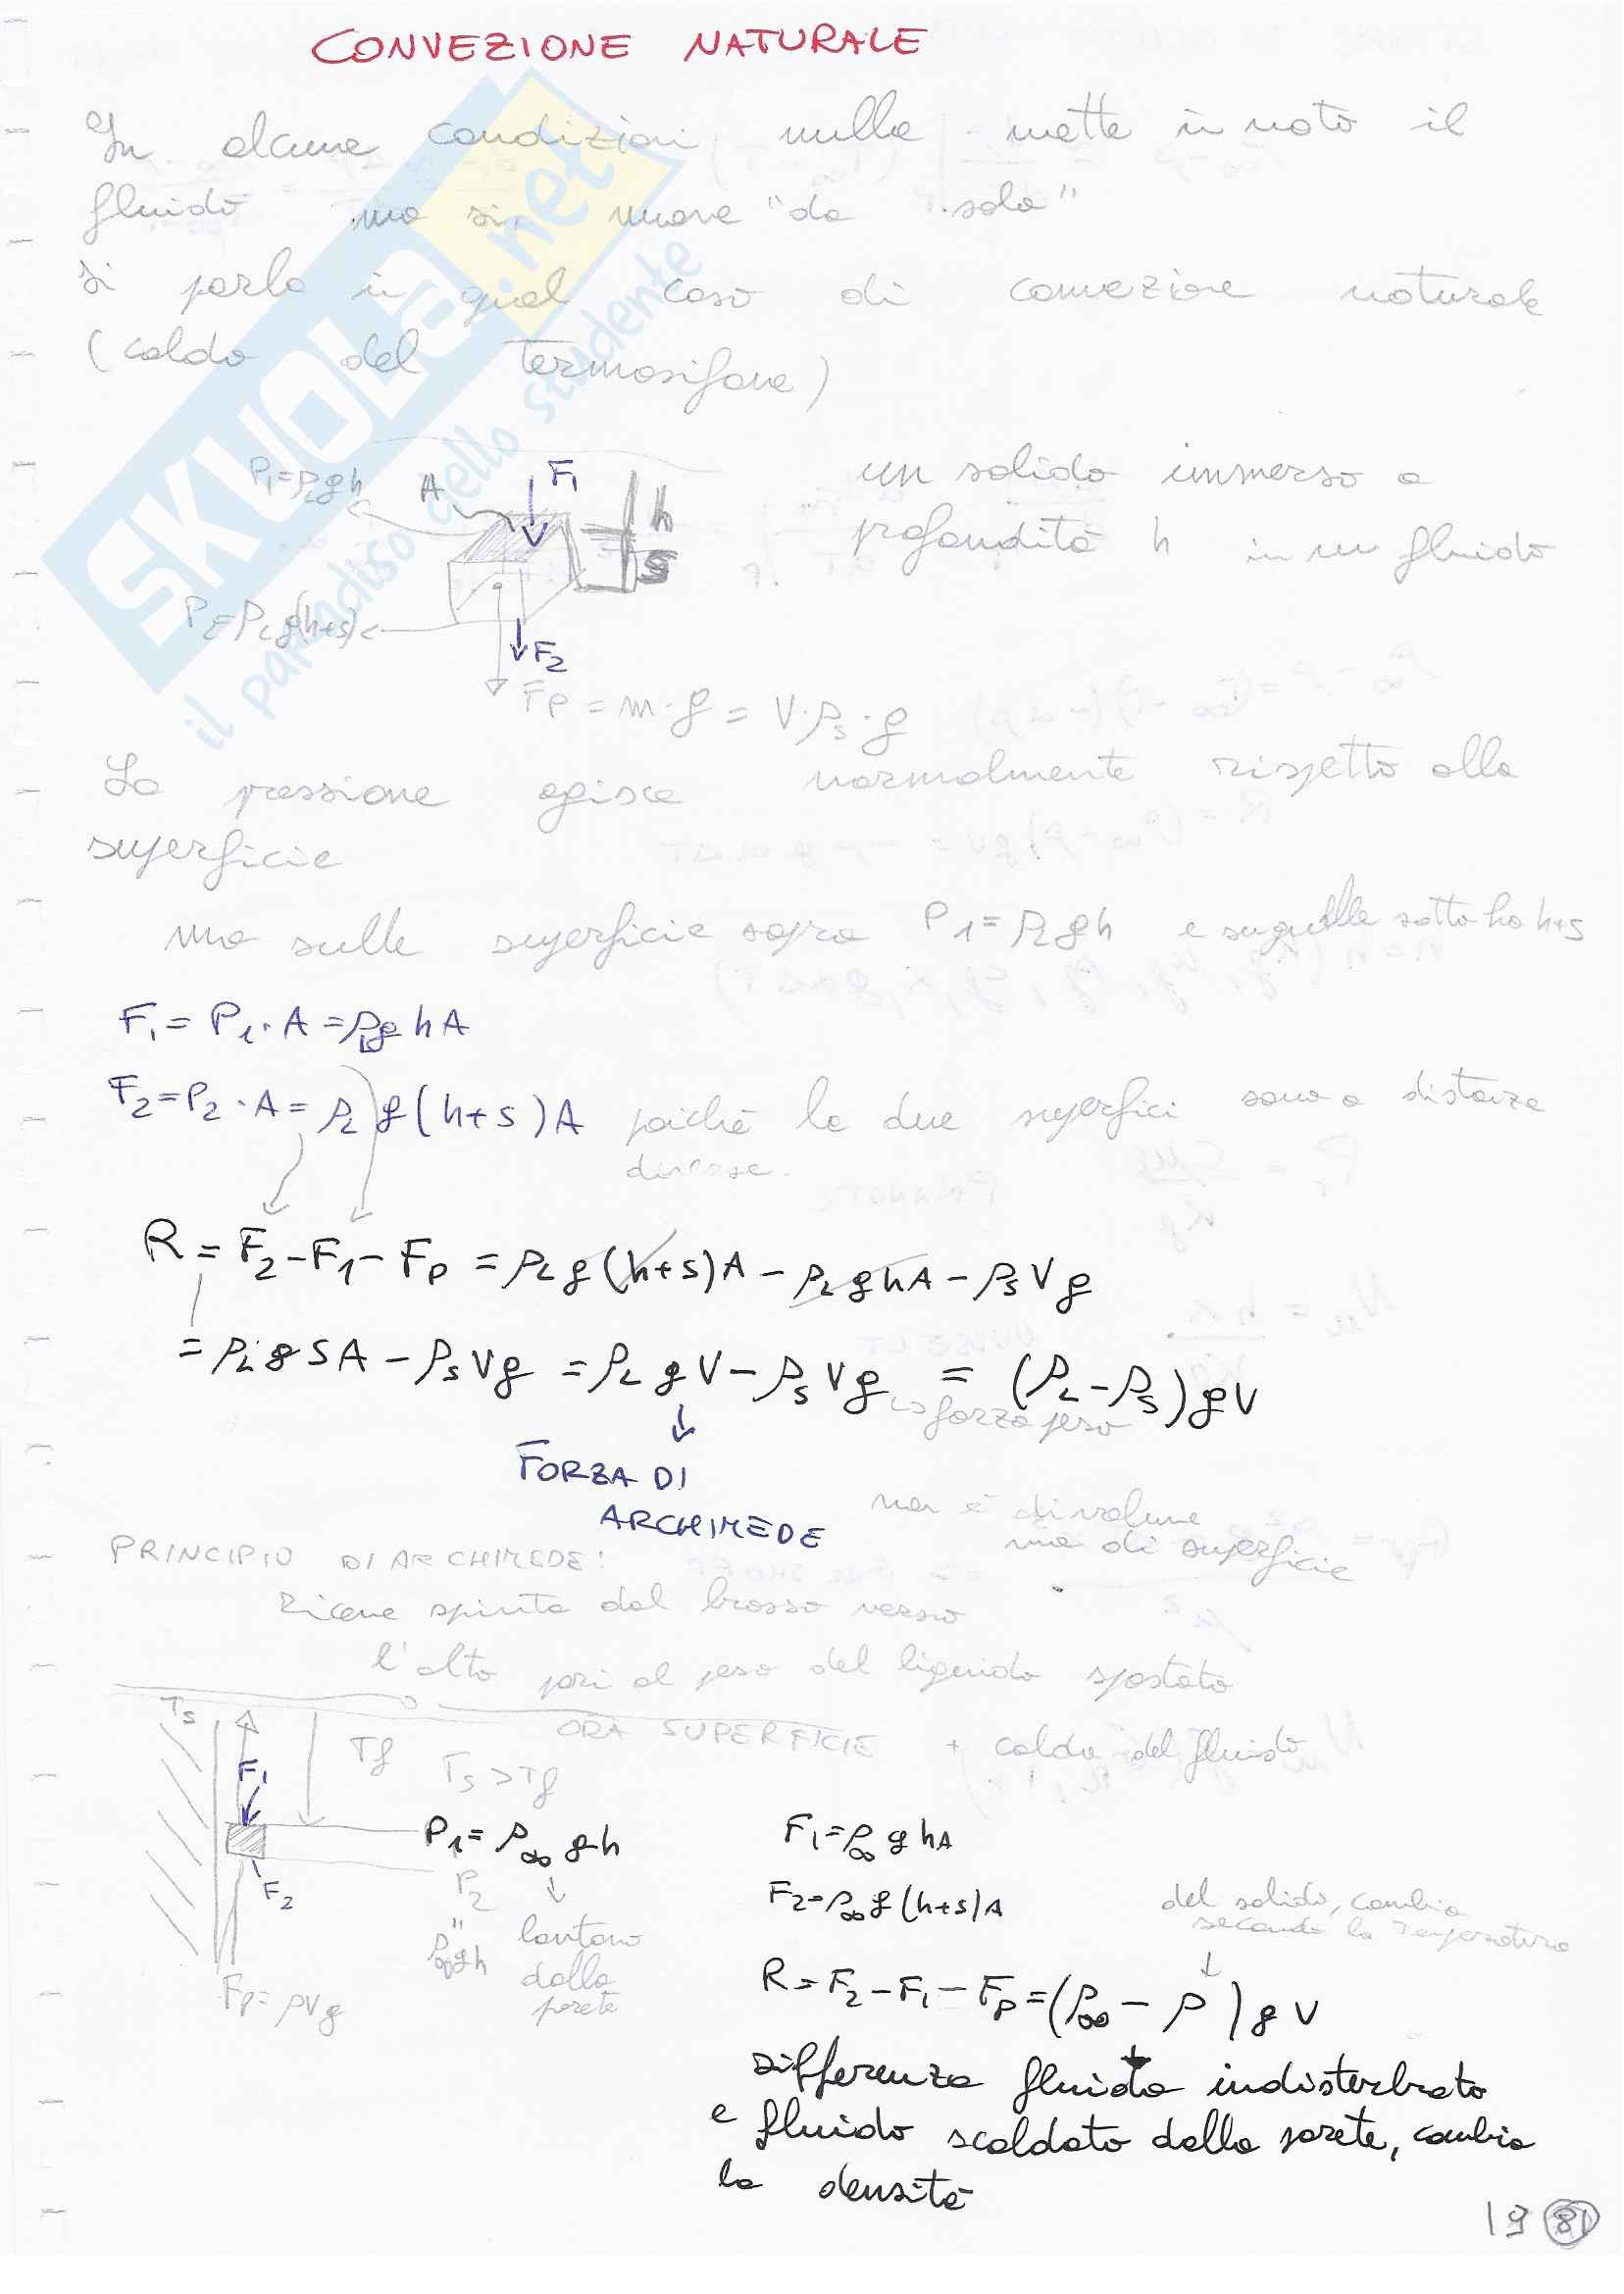 CONVEZIONE NATURALE
In alcune condizioni nulla mette in moto il
fluido ma si muove "da solo"
si parla in qual caso di convezione naturale
(caldo del termosifone)
P₁=ρ_L g h A F₁ h
un solido immerso a
profondità h in un fluido
S
P₂=ρ_L g(h+s)
F₂
Fp = m·g = V·ρs·g
La pressione agisce normalmente rispetto alla
superficie
ma sulle superficie sopra P₁=ρ_L g h e su quelle sotto ho h+s
F₁ = P₁·A = ρ_L g h A
F₂ = P₂·A = ρ_L g(h+s)A poiché le due superfici sono a distanze
diverse.
R = F₂-F₁-Fp = ρ_L g(h+s)A - ρ_L g h A - ρs V g
= ρ_L g S A - ρs V g = ρ_L g V - ρs V g = (ρ_L-ρs) g V
↳ forza peso
FORZA DI
ARCHIMEDE
non è di volume
ma di superficie
PRINCIPIO DI ARCHIMEDE:
Riceve spinta dal basso verso
l'alto pari al peso del liquido spostato
ORA SUPERFICIE + calda del fluido
Ts
Tf Ts > Tf
F₁
P₁ = ρ∞ g h
F₁ = ρ∞ g h A
P₂
F₂
F₂ = ρ∞ g (h+s) A
" ρ∞ g h
lontano
dalla
parete
del solido, cambia
secondo la temperatura
Fp = ρVg
R = F₂-F₁-Fp = (ρ∞ - ρ) g V
differenza fluido indisturbato
e fluido scaldato dalla parete, cambia
la densità
19 81
SKUOLA.net
il paradiso dello studente